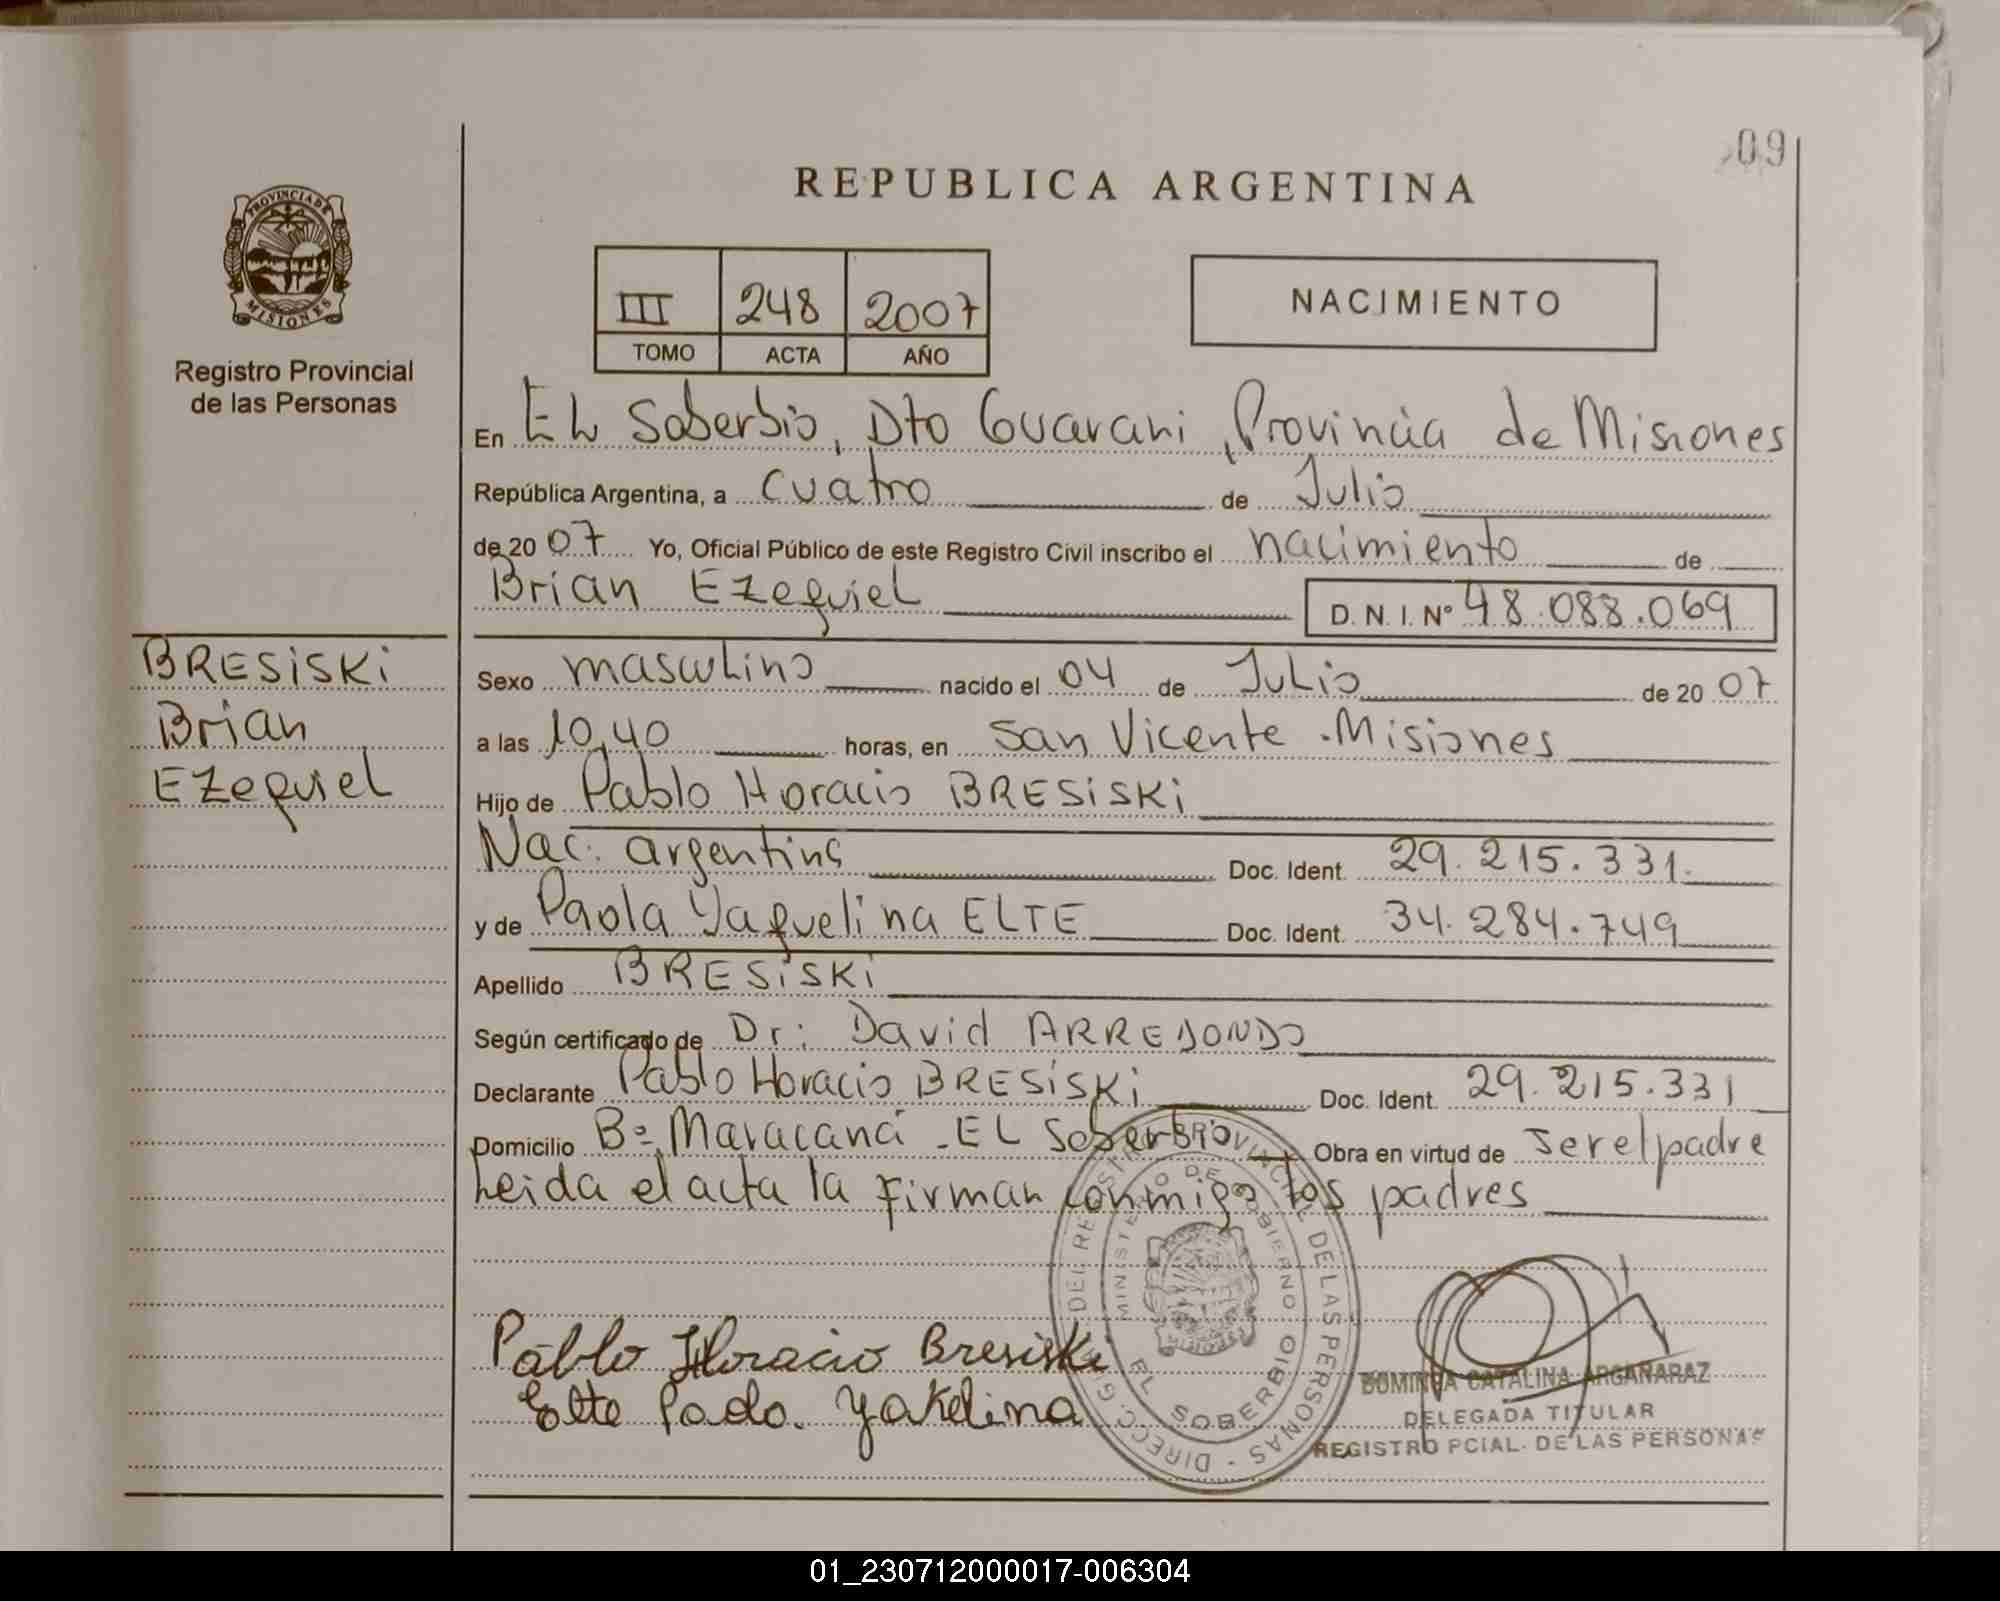 09
REPUBLICA ARGENTINA
PROVINCIA DE
MISIONES
Registro Provincial
de las Personas
III 248 2007
TOMO ACTA AÑO
NACIMIENTO
En EL Soberbio, Dto Guarani, Provincia de Misiones
República Argentina, a cuatro de Julio
de 20 07 Yo, Oficial Público de este Registro Civil inscribo el nacimiento de
Brian Ezequiel D. N. I. Nº 48.088.069
BRESiSKi
Brian
Ezequiel
Sexo masculino nacido el 04 de Julio de 20 07
a las 10,40 horas, en San Vicente - Misiones
Hijo de Pablo Horacio BRESiSKi
Nac: argentina Doc. Ident. 29.215.331.
y de Paola Yaquelina ELTE Doc. Ident. 34.284.749
Apellido BRESiSKi
Según certificado de Dr: David ARREDONDO
Declarante Pablo Horacio BRESiSKi Doc. Ident. 29.215.331
Domicilio Bº Maracaná - EL Soberbio Obra en virtud de ser el padre
Leida el acta la firman conmigo los padres
Pablo Horacio Bresiski
Elte Paola Yakelina
DIRECC. GRAL. DEL REGISTRO PROVINCIAL DE LAS PERSONAS -
MINISTERIO DE GOBIERNO
EL SOBERBIO
DOMINGA CATALINA ARGAÑARAZ
DELEGADA TITULAR
REGISTRO PCIAL. DE LAS PERSONAS
01_230712000017-006304